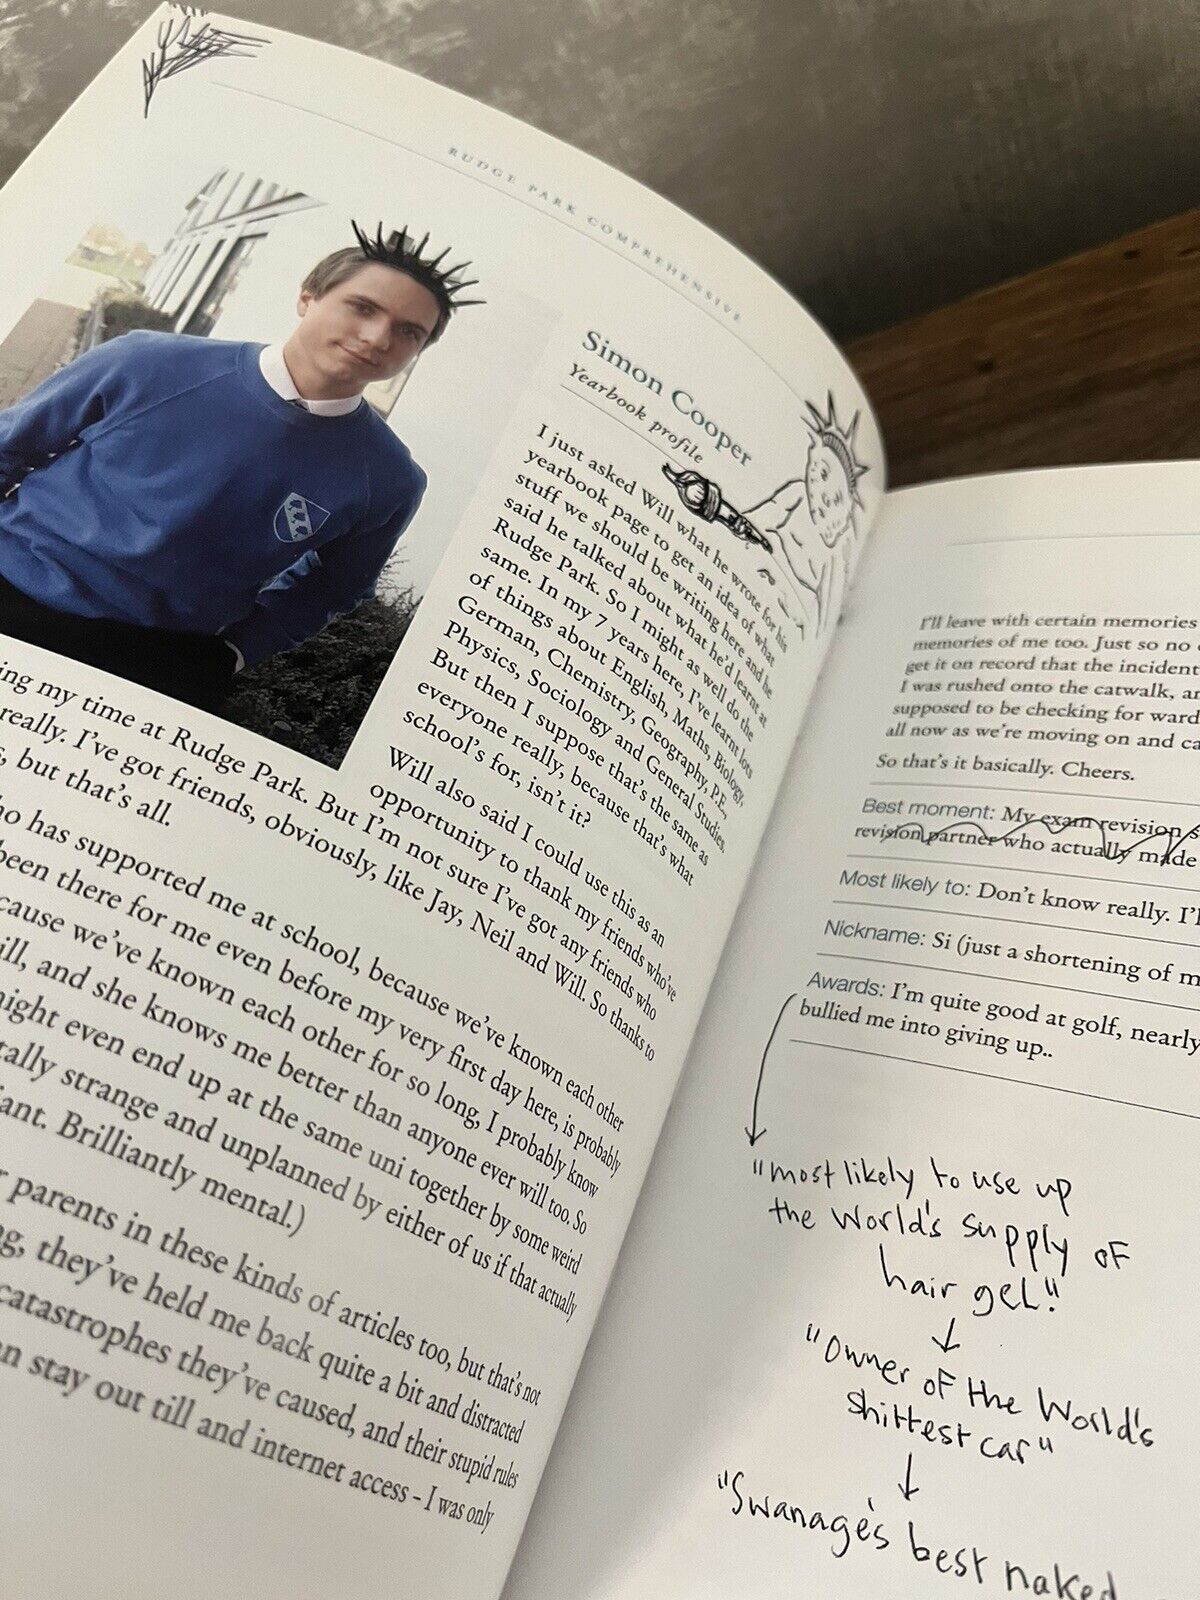 RUDGE PARK COMPREHENSIVE
Simon Cooper
Yearbook profile
I just asked Will what he wrote for his
yearbook page to get an idea of what
stuff we should be writing here and he
said he talked about what he'd learnt at
Rudge Park. So I might as well do the
same. In my 7 years here, I've learnt lots
of things about English, Maths, Biology,
German, Chemistry, Geography, P.E.,
Physics, Sociology and General Studies.
But then I suppose that's the same as
everyone really, because that's what
school's for, isn't it?
Will also said I could use this as an
opportunity to thank my friends who've
ing my time at Rudge Park. But I'm not sure I've got any friends who
really. I've got friends, obviously, like Jay, Neil and Will. So thanks to
, but that's all.
ho has supported me at school, because we've known each other
been there for me even before my very first day here, is probably
cause we've known each other for so long, I probably know
ill, and she knows me better than anyone ever will too. So
might even end up at the same uni together by some weird
tally strange and unplanned by either of us if that actually
iant. Brilliantly mental.)
r parents in these kinds of articles too, but that's not
g, they've held me back quite a bit and distracted
catastrophes they've caused, and their stupid rules
n stay out till and internet access - I was only
I'll leave with certain memories
memories of me too. Just so no
get it on record that the incident
I was rushed onto the catwalk, an
supposed to be checking for ward
all now as we're moving on and ca
So that's it basically. Cheers.
Best moment: My exam revision s
revision partner who actually made
Most likely to: Don't know really. I'l
Nickname: Si (just a shortening of m
Awards: I'm quite good at golf, nearly
bullied me into giving up..
"most likely to use up
the World's supply of
hair gel."
"Owner of the World's
shittest car"
"Swanage's best naked